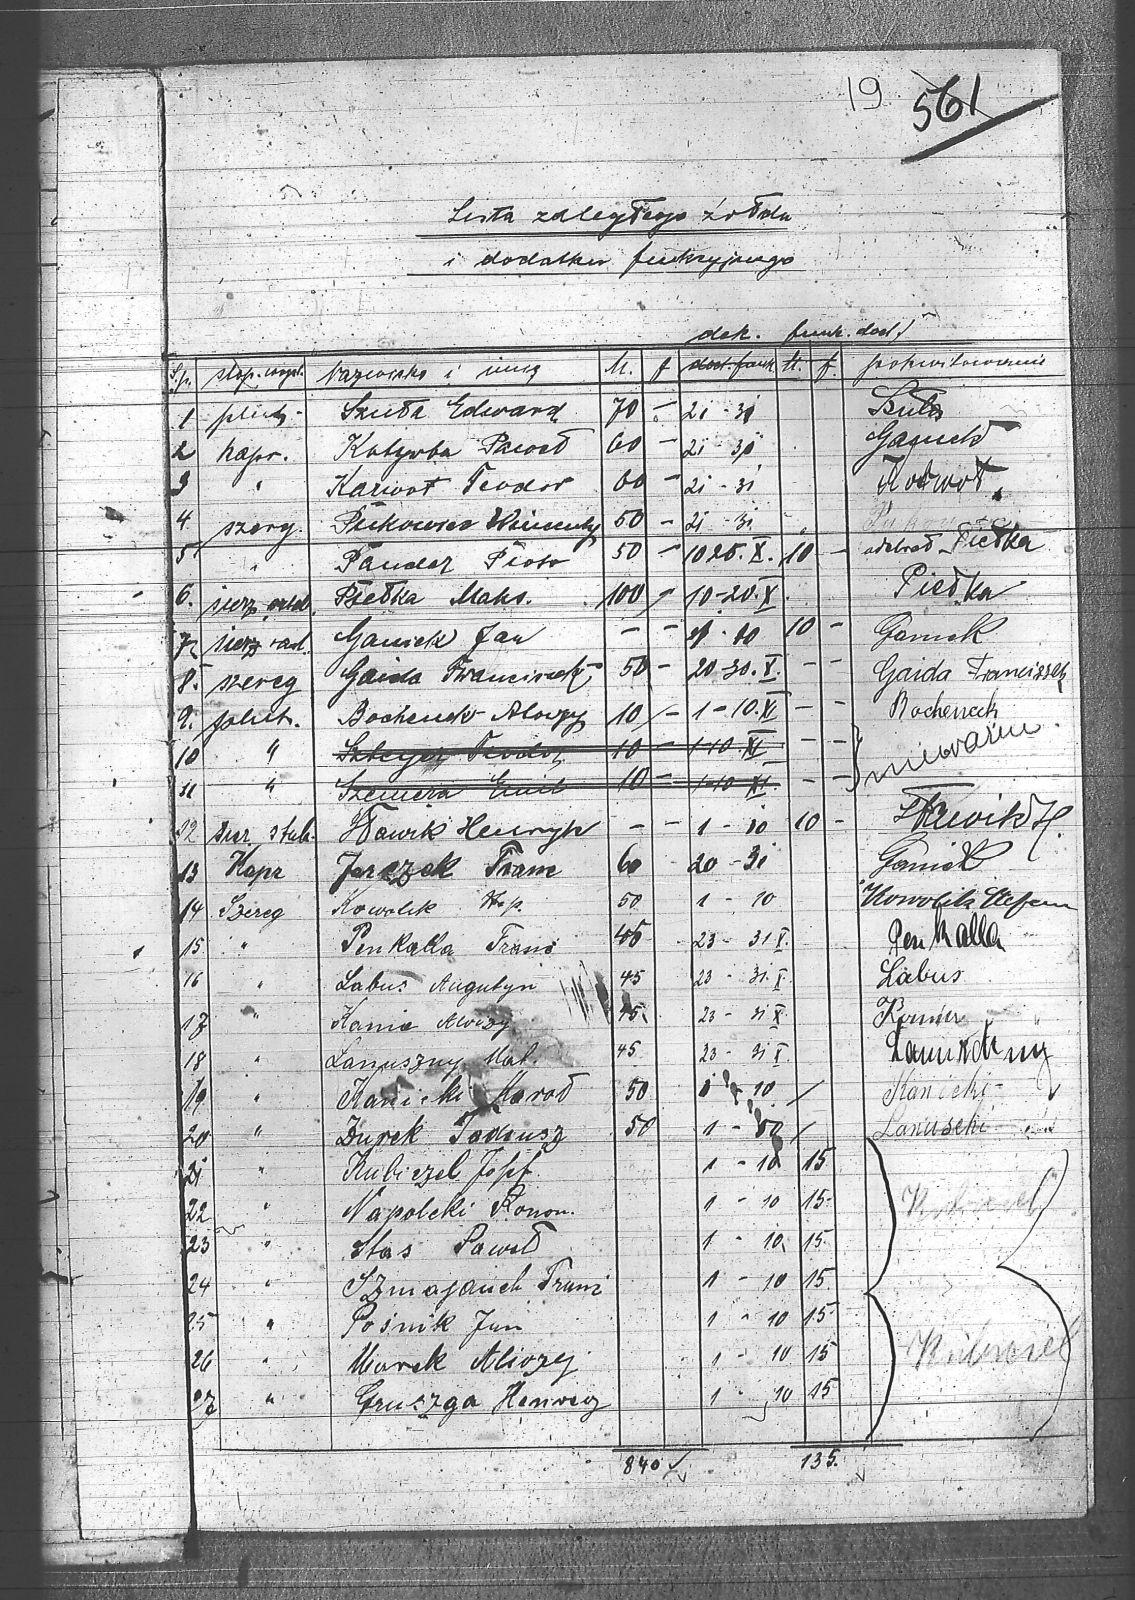 19 561
Lista zaległego żołdu
i dodatku funkcyjnego
dek. funk. dod.
L.p. stop. wojsk. Nazwisko i imię M. f dod. funk M. f. pokwitowanie
1 plut. Szuła Edward 70 - 21 - 31 Szuła
2 kapr. Kotyrba Paweł 60 - 21 - 31
3 " Karwot Teodor 60 - 21 - 31 Karwot
4 szereg. Wincenty 50 - 21 - 31
5 " Pander Piotr 50 - 10 20. X. 10 - odebrał Piełka
6. sierż. Piełka Maks. 100 - 10-20. X Piełka
7. sierż. Ganick Jan - - 1 - 10 10 - Ganick
8. szereg Gaida Franciszek 50 - 20-30. X. - - Gaida Franciszek
9. plut. Bochenek Alojzy 10 - 1 - 10. XI - - Bocheneck
10 " Teodor 10 - 1-10 XI - -
11 " Szemera Emil 10 - 1-10 XI - - nieważne
12 sier. szab. Sławik Henryk - - 1 - 10 10 - Sławik H.
13 Kapr Jarczok Franc 60 20 - 31 Ganick
14 Szereg Kowolik 50 1 - 10 Kowolik Stefan
15 " Penkalla Franc 45 23 - 31 X. Penkalla
16 " Labus Augustyn 45 23 - 31. X. Labus
17 " Kania Alojzy 45 23 - 31 X. Kania
18 " Lanuszny 45 23 - 31 X. Lanuszny
19 " Kanicki Karol 50 1 - 10 / Kanicki
20 " Żurek Tadeusz 50 1 - 10 /
21 " Kubiczek Józef 1 - 10 15
22 " Napolski Roman 1 - 10 15 Kubiczek
23 " Stas Paweł 1 - 10 15
24 " Franc 1 - 10 15
25 " Pośnik Jan 1 - 10 15
26 " Marek Alojzy 1 - 10 15 Kubiczek
27 " Henryk 1 - 10 15
840 135.